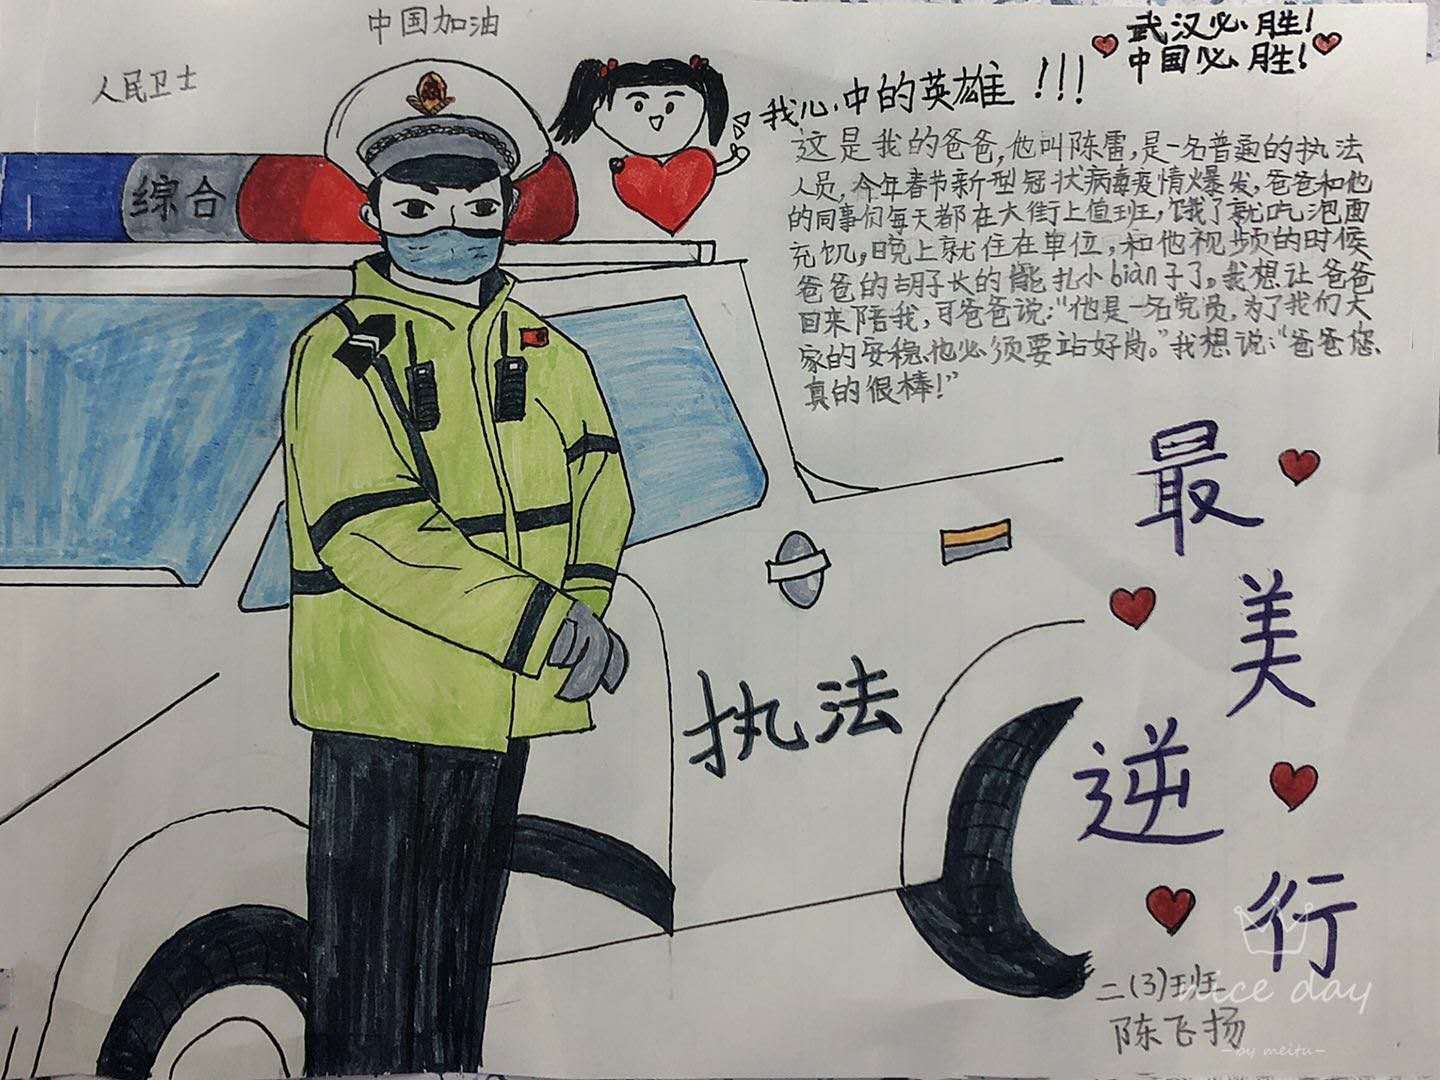 中国加油
人民卫士
武汉必胜！
中国必胜！
我心中的英雄！！！
这是我的爸爸，他叫陈雷，是一名普通的执法
人员，今年春节新型冠状病毒疫情爆发，爸爸和他
的同事们每天都在大街上值班，饿了就吃泡面
充饥，晚上就住在单位，和他视频的时候
爸爸的胡子长的能扎小bian子了。我想让爸爸
回来陪我，可爸爸说：“他是一名党员，为了我们大
家的安稳，他必须要站好岗。”我想说：“爸爸您
真的很棒！”
综合
执法
最
美
逆
行
二(3)班
陈飞扬
nice day
-by meitu-